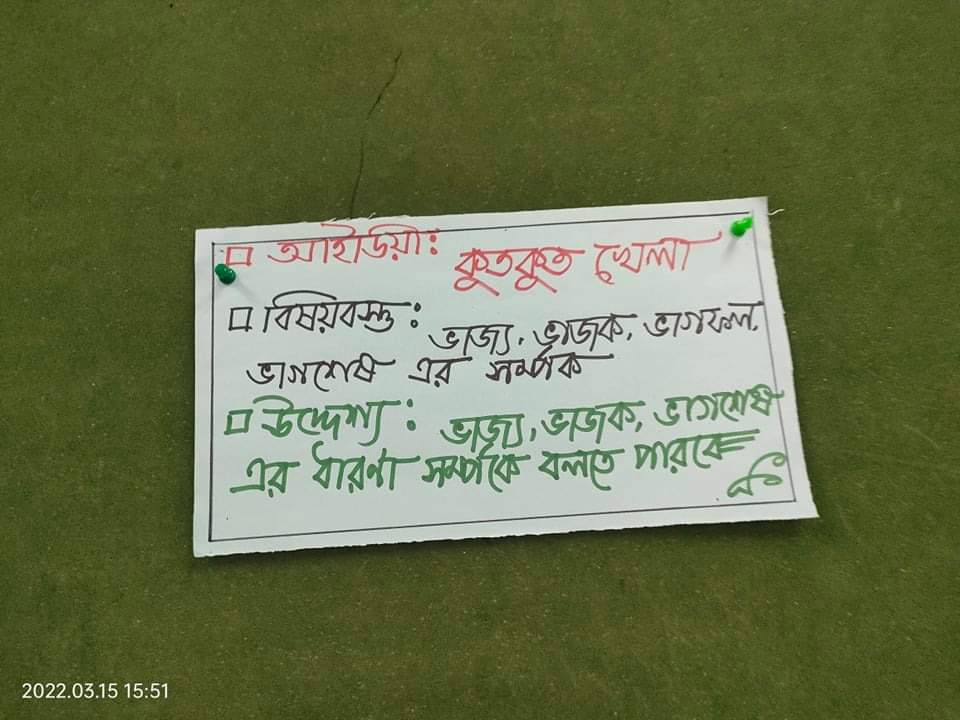 □ আইডিয়া: কুতকুত খেলা
□ বিষয়বস্তু: ভাজ্য, ভাজক, ভাগফল,
ভাগশেষ এর সম্পর্ক
□ উদ্দেশ্য: ভাজ্য, ভাজক, ভাগশেষ
এর ধারণা সম্পর্কে বলতে পারবে
2022.03.15 15:51